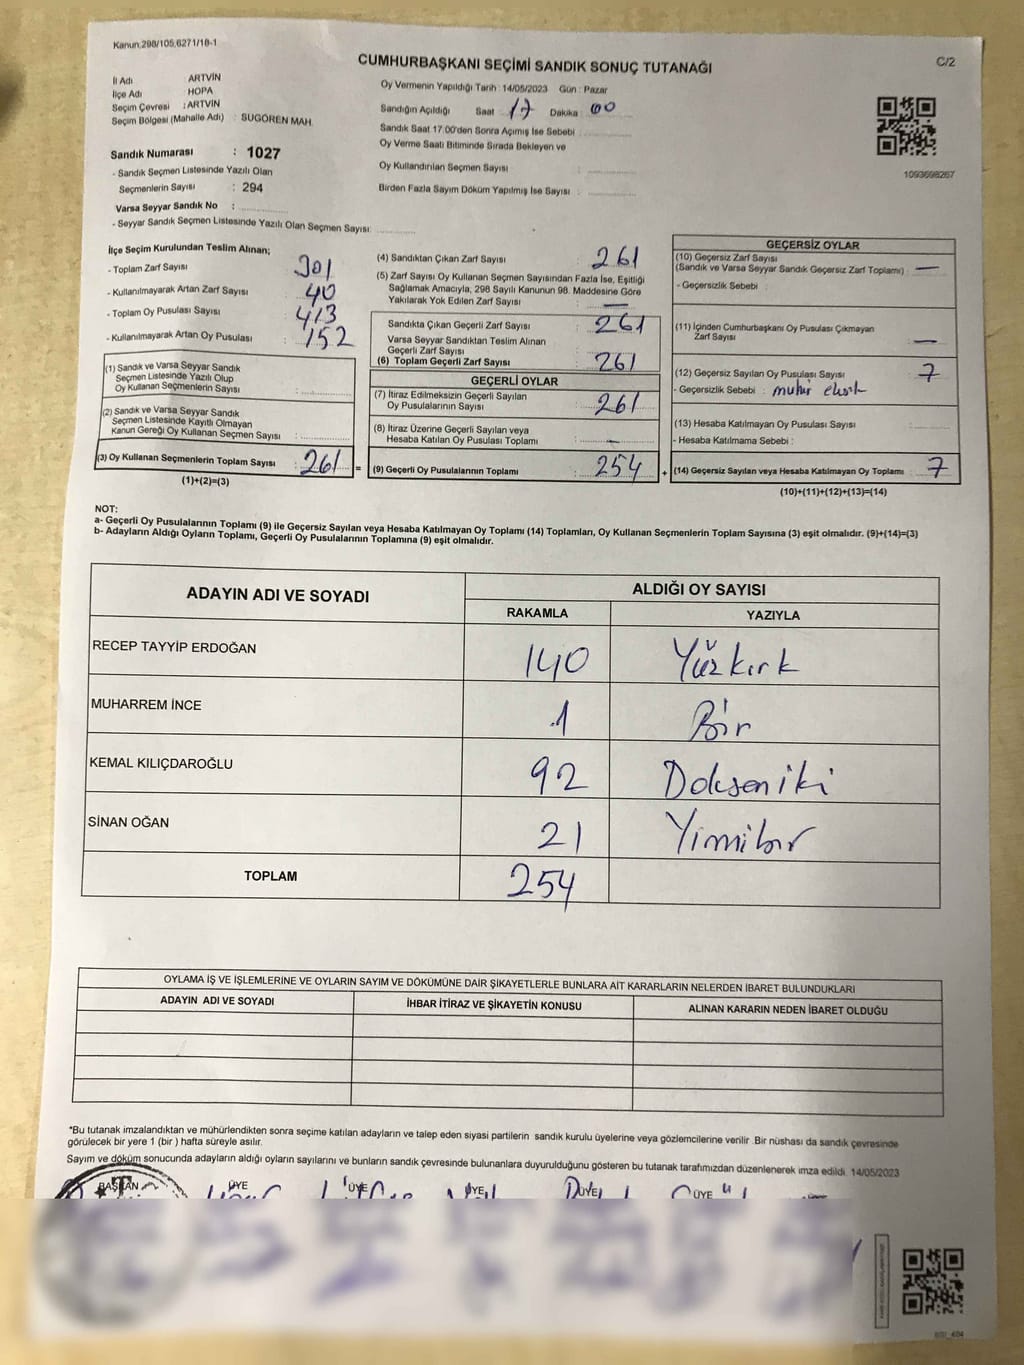 Kanun:298/105,6271/18-1
CUMHURBAŞKANI SEÇİMİ SANDIK SONUÇ TUTANAĞI
C/2
İl Adı : ARTVİN
İlçe Adı : HOPA
Seçim Çevresi : ARTVİN
Seçim Bölgesi (Mahalle Adı) : SUGÖREN MAH.
Sandık Numarası : 1027
- Sandık Seçmen Listesinde Yazılı Olan
Seçmenlerin Sayısı : 294
Varsa Seyyar Sandık No :
- Seyyar Sandık Seçmen Listesinde Yazılı Olan Seçmen Sayısı:
Oy Vermenin Yapıldığı Tarih : 14/05/2023 Gün : Pazar
Sandığın Açıldığı Saat 17 Dakika : 00
Sandık Saat 17.00'den Sonra Açımış İse Sebebi :
Oy Verme Saati Bitiminde Sırada Bekleyen ve
Oy Kullandırılan Seçmen Sayısı :
Birden Fazla Sayım Döküm Yapılmış İse Sayısı :
1093698267
İlçe Seçim Kurulundan Teslim Alınan;
- Toplam Zarf Sayısı : 301
- Kullanılmayarak Artan Zarf Sayısı : 40
- Toplam Oy Pusulası Sayısı : 413
- Kullanılmayarak Artan Oy Pusulası : 152
(1) Sandık ve Varsa Seyyar Sandık
Seçmen Listesinde Yazılı Olup
Oy Kullanan Seçmenlerin Sayısı :
(2) Sandık ve Varsa Seyyar Sandık
Seçmen Listesinde Kayıtlı Olmayan
Kanun Gereği Oy Kullanan Seçmen Sayısı :
(3) Oy Kullanan Seçmenlerin Toplam Sayısı : 261 =
(1)+(2)=(3)
(4) Sandıktan Çıkan Zarf Sayısı : 261
(5) Zarf Sayısı Oy Kullanan Seçmen Sayısından Fazla İse, Eşitliği
Sağlamak Amacıyla, 298 Sayılı Kanunun 98. Maddesine Göre
Yakılarak Yok Edilen Zarf Sayısı : —
Sandıkta Çıkan Geçerli Zarf Sayısı : 261
Varsa Seyyar Sandıktan Teslim Alınan
Geçerli Zarf Sayısı :
(6) Toplam Geçerli Zarf Sayısı : 261
GEÇERLİ OYLAR
(7) İtiraz Edilmeksizin Geçerli Sayılan
Oy Pusulalarının Sayısı : 261
(8) İtiraz Üzerine Geçerli Sayılan veya
Hesaba Katılan Oy Pusulası Toplamı : —
(9) Geçerli Oy Pusulalarının Toplamı : 254 +
GEÇERSİZ OYLAR
(10) Geçersiz Zarf Sayısı
(Sandık ve Varsa Seyyar Sandık Geçersiz Zarf Toplamı) : —
- Geçersizlik Sebebi :
(11) İçinden Cumhurbaşkanı Oy Pusulası Çıkmayan
Zarf Sayısı : —
(12) Geçersiz Sayılan Oy Pusulası Sayısı : 7
- Geçersizlik Sebebi : muhür eksik
(13) Hesaba Katılmayan Oy Pusulası Sayısı :
- Hesaba Katılmama Sebebi :
(14) Geçersiz Sayılan veya Hesaba Katılmayan Oy Toplamı : 7
(10)+(11)+(12)+(13)=(14)
NOT:
a- Geçerli Oy Pusulalarının Toplamı (9) ile Geçersiz Sayılan veya Hesaba Katılmayan Oy Toplamı (14) Toplamları, Oy Kullanan Seçmenlerin Toplam Sayısına (3) eşit olmalıdır. (9)+(14)=(3)
b- Adayların Aldığı Oyların Toplamı, Geçerli Oy Pusulalarının Toplamına (9) eşit olmalıdır.
ADAYIN ADI VE SOYADI
ALDIĞI OY SAYISI
RAKAMLA YAZIYLA
RECEP TAYYİP ERDOĞAN 140 Yüzkırk
MUHARREM İNCE 1 Bir
KEMAL KILIÇDAROĞLU 92 Doksaniki
SİNAN OĞAN 21 Yirmibir
TOPLAM 254
OYLAMA İŞ VE İŞLEMLERİNE VE OYLARIN SAYIM VE DÖKÜMÜNE DAİR ŞİKAYETLERLE BUNLARA AİT KARARLARIN NELERDEN İBARET BULUNDUKLARI
ADAYIN ADI VE SOYADI İHBAR İTİRAZ VE ŞİKAYETİN KONUSU ALINAN KARARIN NEDEN İBARET OLDUĞU
*Bu tutanak imzalandıktan ve mühürlendikten sonra seçime katılan adayların ve talep eden siyasi partilerin sandık kurulu üyelerine veya gözlemcilerine verilir .Bir nüshası da sandık çevresinde
görülecek bir yere 1 (bir ) hafta süreyle asılır.
Sayım ve döküm sonucunda adayların aldığı oyların sayılarını ve bunların sandık çevresinde bulunanlara duyurulduğunu gösteren bu tutanak tarafımızdan düzenlenerek imza edildi. 14/05/2023
BAŞKAN ÜYE ÜYE ÜYE ÜYE ÜYE